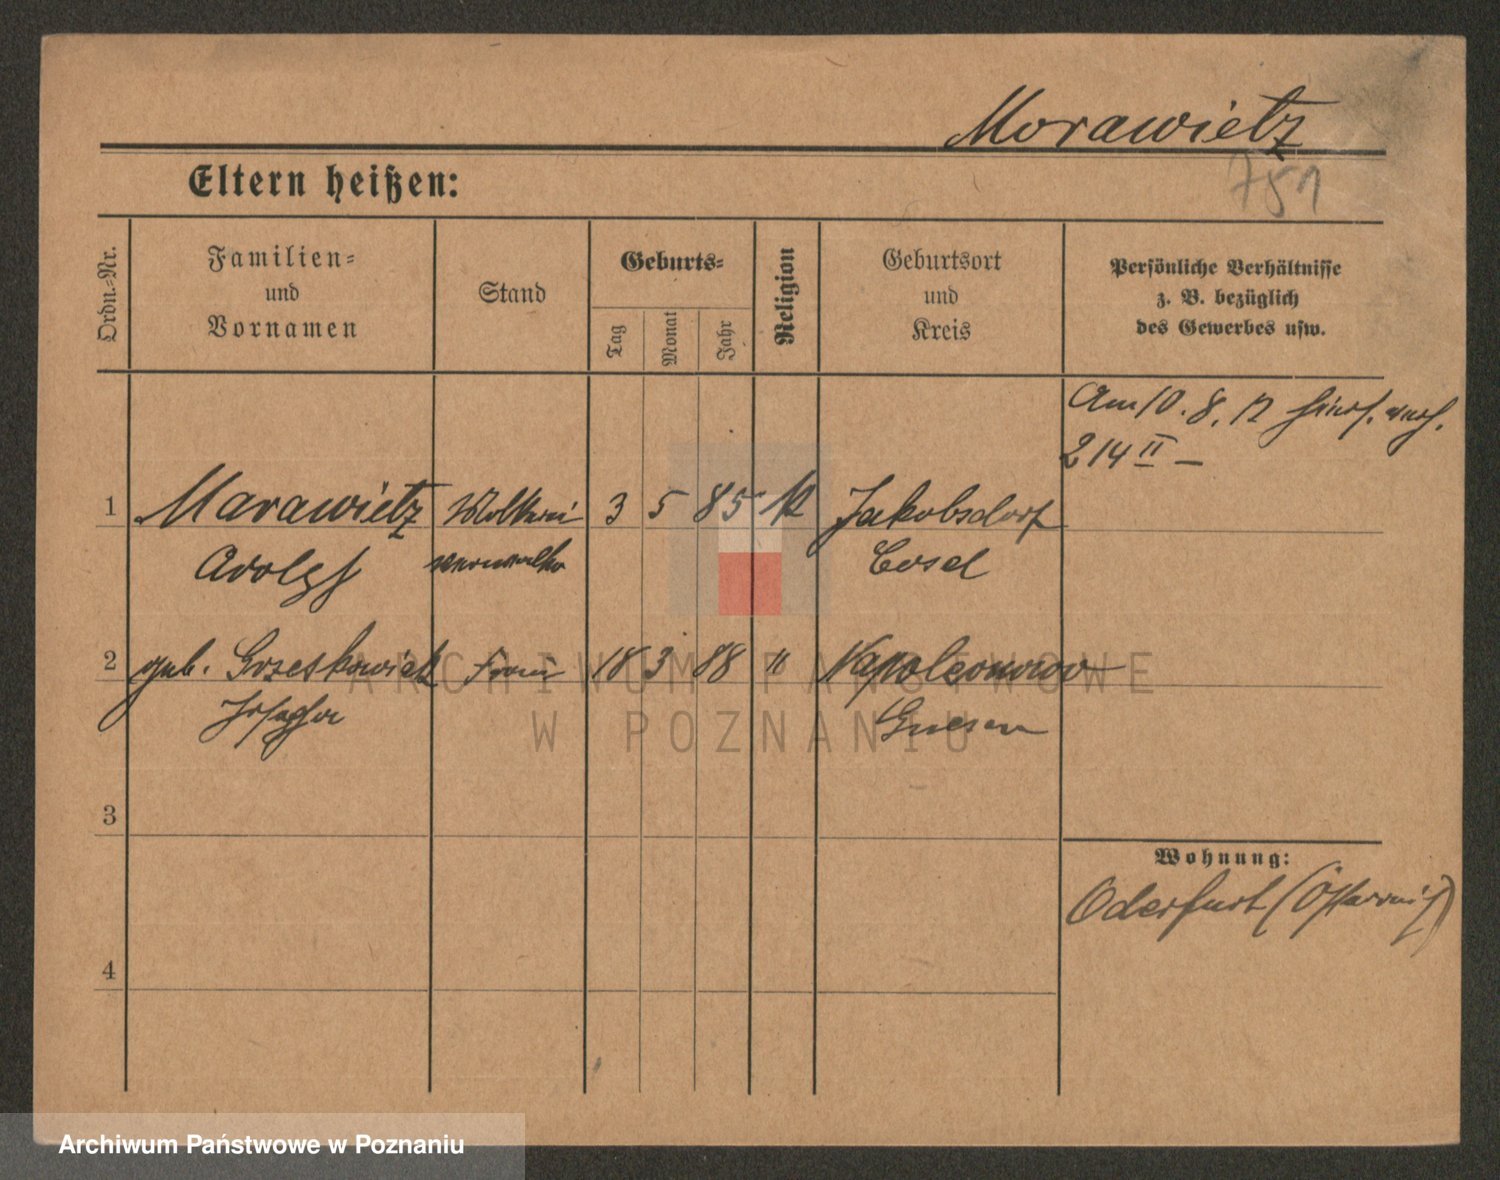 Morawietz
751
Eltern heißen:
Ordn.=Nr.
Familien=
und
Vornamen
Stand
Geburts=
Tag
Monat
Jahr
Religion
Geburtsort
und
Kreis
Persönliche Verhältnisse
z. B. bezüglich
des Gewerbes usw.
Am 10. 8. 12 hiers. verh.
214 II –
1 Marawietz Molkerei 3 5 85 K Jakobsdorf
Adolf verwalter Cosel
2 geb. Grzeskowiak Frau 18 3 88 " Napoleonowo
Josepha Gnesen
3
Wohnung:
Oderfurt (Österreich)
4
ARCHIWUM PAŃSTWOWE
W POZNANIU
Archiwum Państwowe w Poznaniu